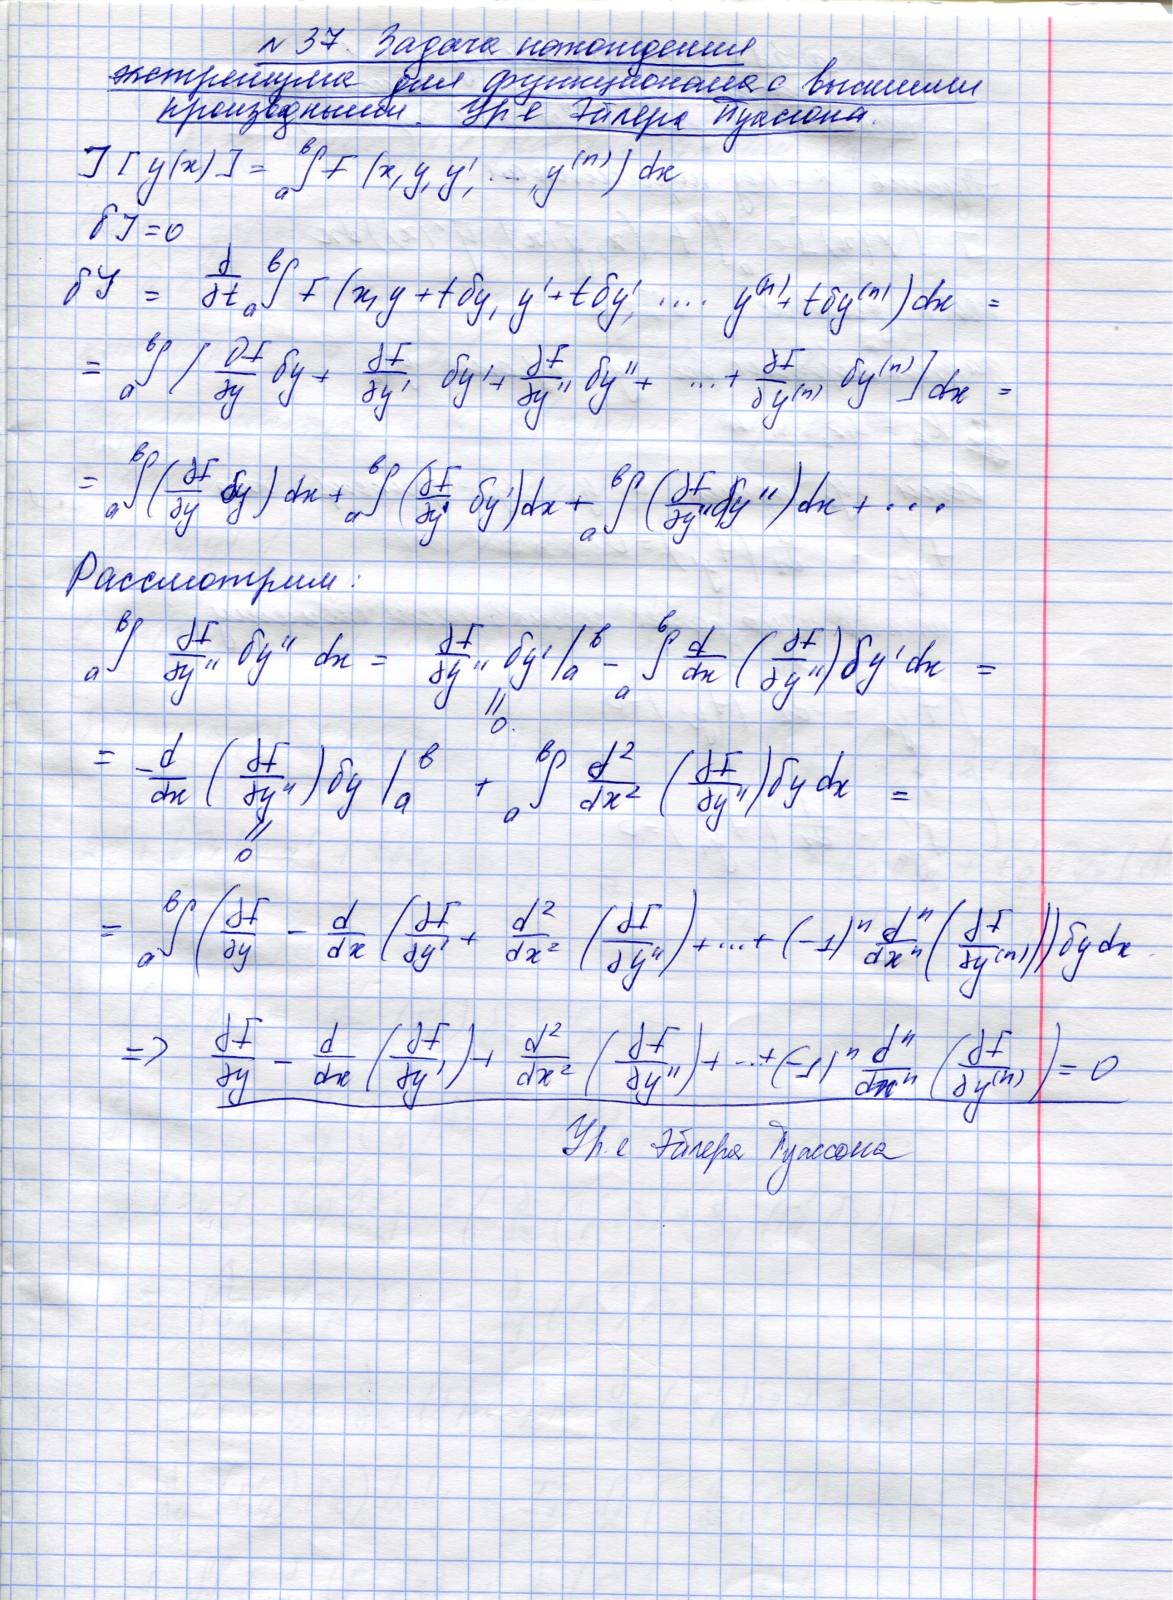 № 37. Задача нахождения
экстремума для функционала с высшими
производными. Ур-е Эйлера Пуассона.
J[y(x)] = ₐ∫ᵇ F(x, y, y', ..., y⁽ⁿ⁾) dx
δJ = 0
δJ = ∂/∂t ₐ∫ᵇ F(x, y + tδy, y' + tδy', .... y⁽ⁿ⁾ + tδy⁽ⁿ⁾) dx =
= ₐ∫ᵇ [∂F/∂y δy + ∂F/∂y' δy' + ∂F/∂y'' δy'' + ... + ∂F/∂y⁽ⁿ⁾ δy⁽ⁿ⁾] dx =
= ₐ∫ᵇ (∂F/∂y δy) dx + ₐ∫ᵇ (∂F/∂y' δy') dx + ₐ∫ᵇ (∂F/∂y'' δy'') dx + ...
Рассмотрим:
ₐ∫ᵇ ∂F/∂y'' δy'' dx = ∂F/∂y'' δy' |ₐᵇ - ₐ∫ᵇ d/dx (∂F/∂y'') δy' dx =
|| 0.
= - d/dx (∂F/∂y'') δy |ₐᵇ + ₐ∫ᵇ d²/dx² (∂F/∂y'') δy dx =
|| 0
= ₐ∫ᵇ (∂F/∂y - d/dx (∂F/∂y' + d²/dx² (∂F/∂y'') + ... + (-1)ⁿ dⁿ/dxⁿ (∂F/∂y⁽ⁿ⁾)) δy dx
=> ∂F/∂y - d/dx (∂F/∂y') + d²/dx² (∂F/∂y'') + ... + (-1)ⁿ dⁿ/dxⁿ (∂F/∂y⁽ⁿ⁾) = 0
Ур-е Эйлера Пуассона